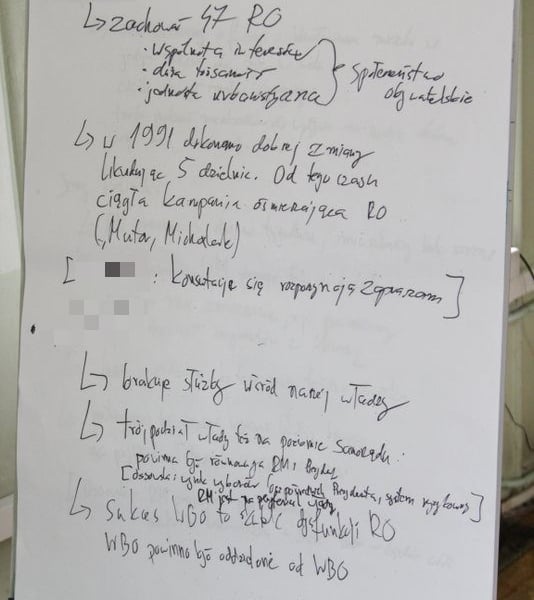 ↳ zachować 47 RO
· wspólnota interesów
· duża tożsamość
· jedność urbanistyczna
społeczeństwo
obywatelskie
↳ w 1991 dokonano dobrej zmiany
likwidując 5 dzielnic. Od tego czasu
ciągła kampania ośmieszająca RO
(„Mutor, Michalak)
[ : konsultacje się rozpoczynają zapraszam]
↳ brakuje służby wśród naszej władzy
↳ trójpodział władzy też na poziomie samorządu.
powinna być równowaga RM i Prezydent
[ wynik wyborów bezpośrednich Prezydenta, system
RM jest na peryferiach władzy
↳ Sukces WBO to skutek dysfunkcji RO
WBO powinno być oddzielone od WBO